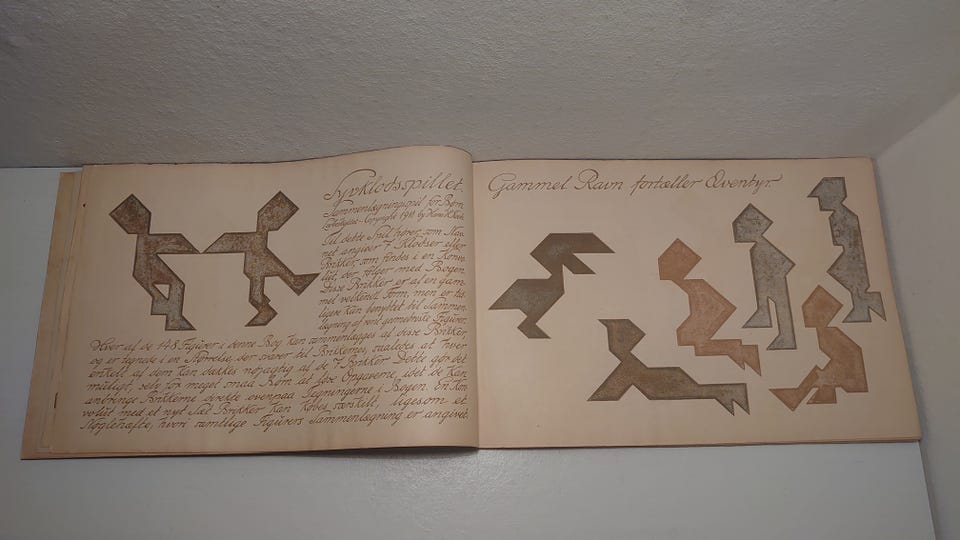 Syvklodsspillet.
Sammenlægningsspil for Børn.
Copyright 19 by Hans
Til dette Spil hører, som Nav-
net angiver 7 Klodser eller
Brikker, som findes i en Konvo-
lut, der følger med Bogen.
Disse Brikker er af en gam-
mel velkendt Form, men er tid-
ligere kun benyttet til Sammen-
lægning af rent geometriske Figurer.
Hver af de 148 Figurer i denne Bog kan sammenlægges af disse Brikker,
og er tegnede i en Størrelse, der svarer til Brikkernes, saaledes at hver
enkelt af dem kan dækkes nøjagtig af de 7 Brikker. Dette gør det
muligt, selv for meget smaa Børn at løse Opgaverne, idet de kan
anbringe Brikkerne direkte ovenpaa Tegningerne i Bogen. En Kon-
volut med et nyt Sæt Brikker kan købes særskilt, ligesom et
Nøglehæfte, hvori samtlige Figurers Sammenlægning er angivet.
Gammel Ravn fortæller Æventyr.